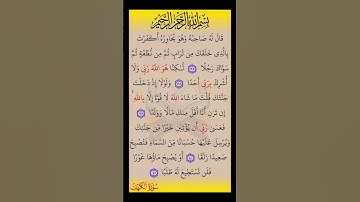 بسم الله الرحمن الرحيم
قَالَ لَهُ صَاحِبُهُ وَهُوَ يُحَاوِرُهُ أَكَفَرْتَ
بِالَّذِي خَلَقَكَ مِن تُرَابٍ ثُمَّ مِن نُّطْفَةٍ ثُمَّ
سَوَّاكَ رَجُلًا ٣٧ لَّٰكِنَّا هُوَ اللَّهُ رَبِّي وَلَا
أُشْرِكُ بِرَبِّي أَحَدًا ٣٨ وَلَوْلَا إِذْ دَخَلْتَ
جَنَّتَكَ قُلْتَ مَا شَاءَ اللَّهُ لَا قُوَّةَ إِلَّا بِاللَّهِ ۚ
إِن تَرَنِ أَنَا أَقَلَّ مِنكَ مَالًا وَوَلَدًا ٣٩
فَعَسَىٰ رَبِّي أَن يُؤْتِيَنِ خَيْرًا مِّن جَنَّتِكَ
وَيُرْسِلَ عَلَيْهَا حُسْبَانًا مِّنَ السَّمَاءِ فَتُصْبِحَ
صَعِيدًا زَلَقًا ٤٠ أَوْ يُصْبِحَ مَاؤُهَا غَوْرًا
فَلَن تَسْتَطِيعَ لَهُ طَلَبًا ٤١
سُورَةُ الكَهْف